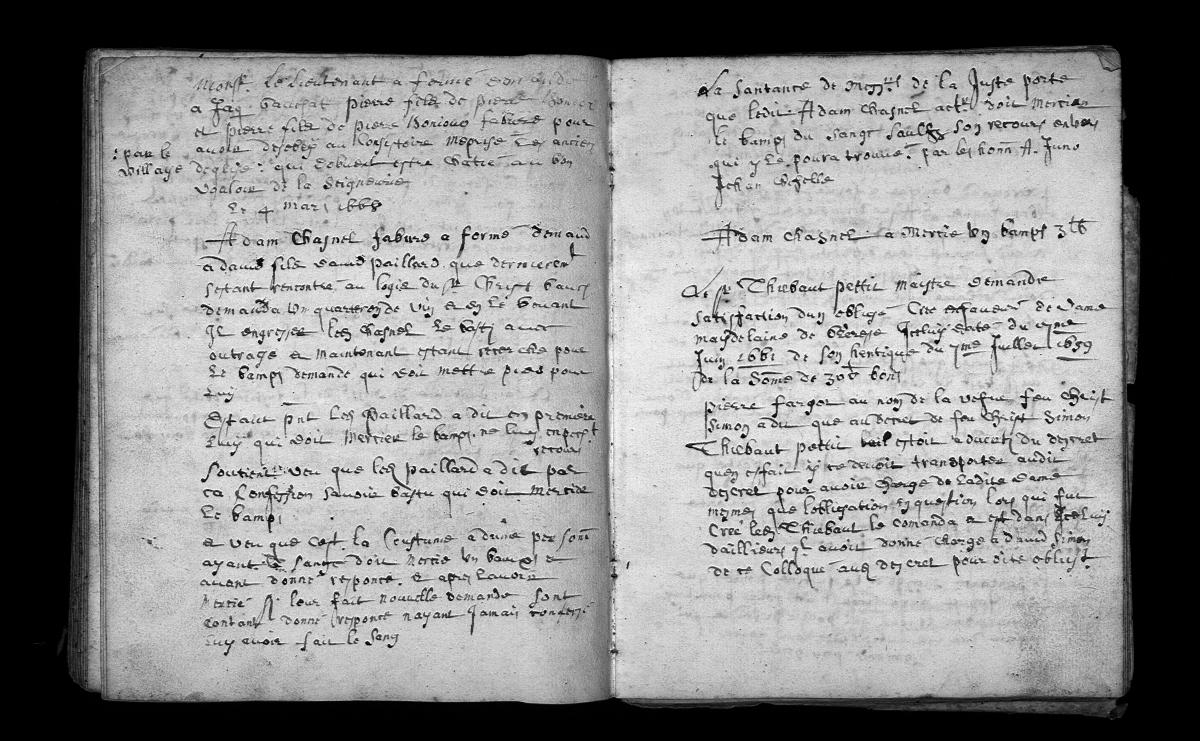 Monsr. Le Lieutenant a formé
a Jaq. Gauchat pierre filz de pierre Bonioz
et pierre filz de piere Bonioux fabure pour
avoir desobey au Consistoire meprise les ancien
: par le
village
deglise qui doibvent estre chatié au bon
vouloir de la Seigneurie
Le 4 mars 1668
Adam Chasnel fabure a formé demand
a david filz david paillard que dernieremt
sestant rencontré au logis du Sr Christ
demanda un quarteron de vin et en le beuvant
Il engresser led Chasnel le bastj avec
outrage et maintenant estant recerché pour
le bamps demande qui doit mettre pied pour
luy
Estant pnt led paillard a dit en premiere
luy qui doit Mercier le bamps ne luy en
recour
Soutient veu que led paillard a dit par
ca Confession savoir bastu qui doit Mercier
Le bamps
et veu que cest la Coustume a dune personne
ayant le sang doit mercié un bamps et
avant donné responce. et apres lavoir
Mercié sj leur fait nouvelle demande sont
Contant donné responce nayant Jamais confessé
luy avoir fait le sang
La Santance de Messrs de la Juste porte
que ledit Adam Chasnel acteur doit Mercier
le bamps du sang saulfz son recours envers
qui y le poura trouvé. par les honn A. Juno
Jehan
Adam Chasnel a Mercié un bamps 3 lb
Le sr Thiebaut pettit Maistre demande
Satisfaction dun obligé Cree en faveur de dame
magdelaine de date du
Juin 1661 de son hentique du 7me Juillet 1659
de la Somme de bons
pierre fargot au nom de la vefve feu Christ
Simon a dit que au decret de feu Christ Simon
Thiebaut pettit estoit advocat du descret
quen effait il ce devoit transporter audit
descret pour avoir charge de ladite dame
mesmes que lobligation en question lors qui fut
Créé led Thiebaut le comanda et est dans
dailleurs ql avoit donné charge a david Simon
de ce Colloqué aud descret pour dite obligt.